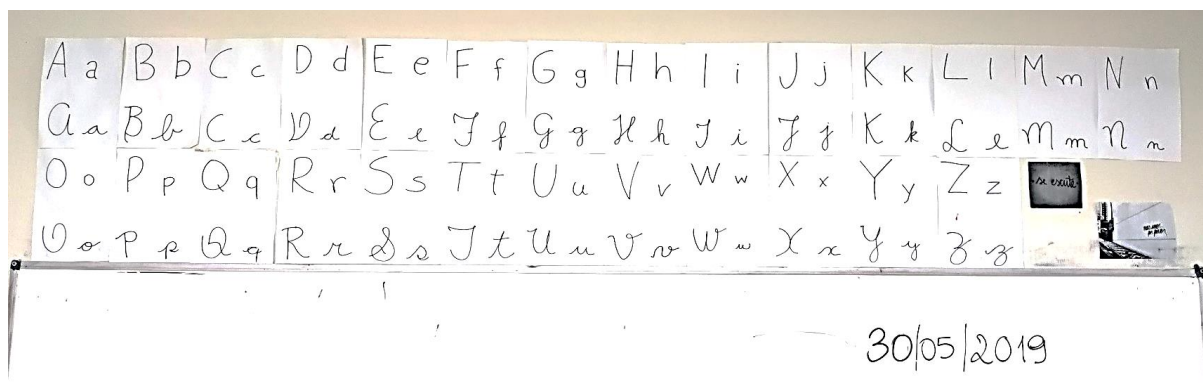 A a B b C c D d E e F f G g H h I i J j K k L l M m N n
A a B b C c D d E e F f G g H h I i J j K k L l M m N n
O o P p Q q R r S s T t U u V v W w X x Y y Z z
-se escute-
O o P p Q q R r S s T t U u V v W w X x Y y Z z
30/05/2019